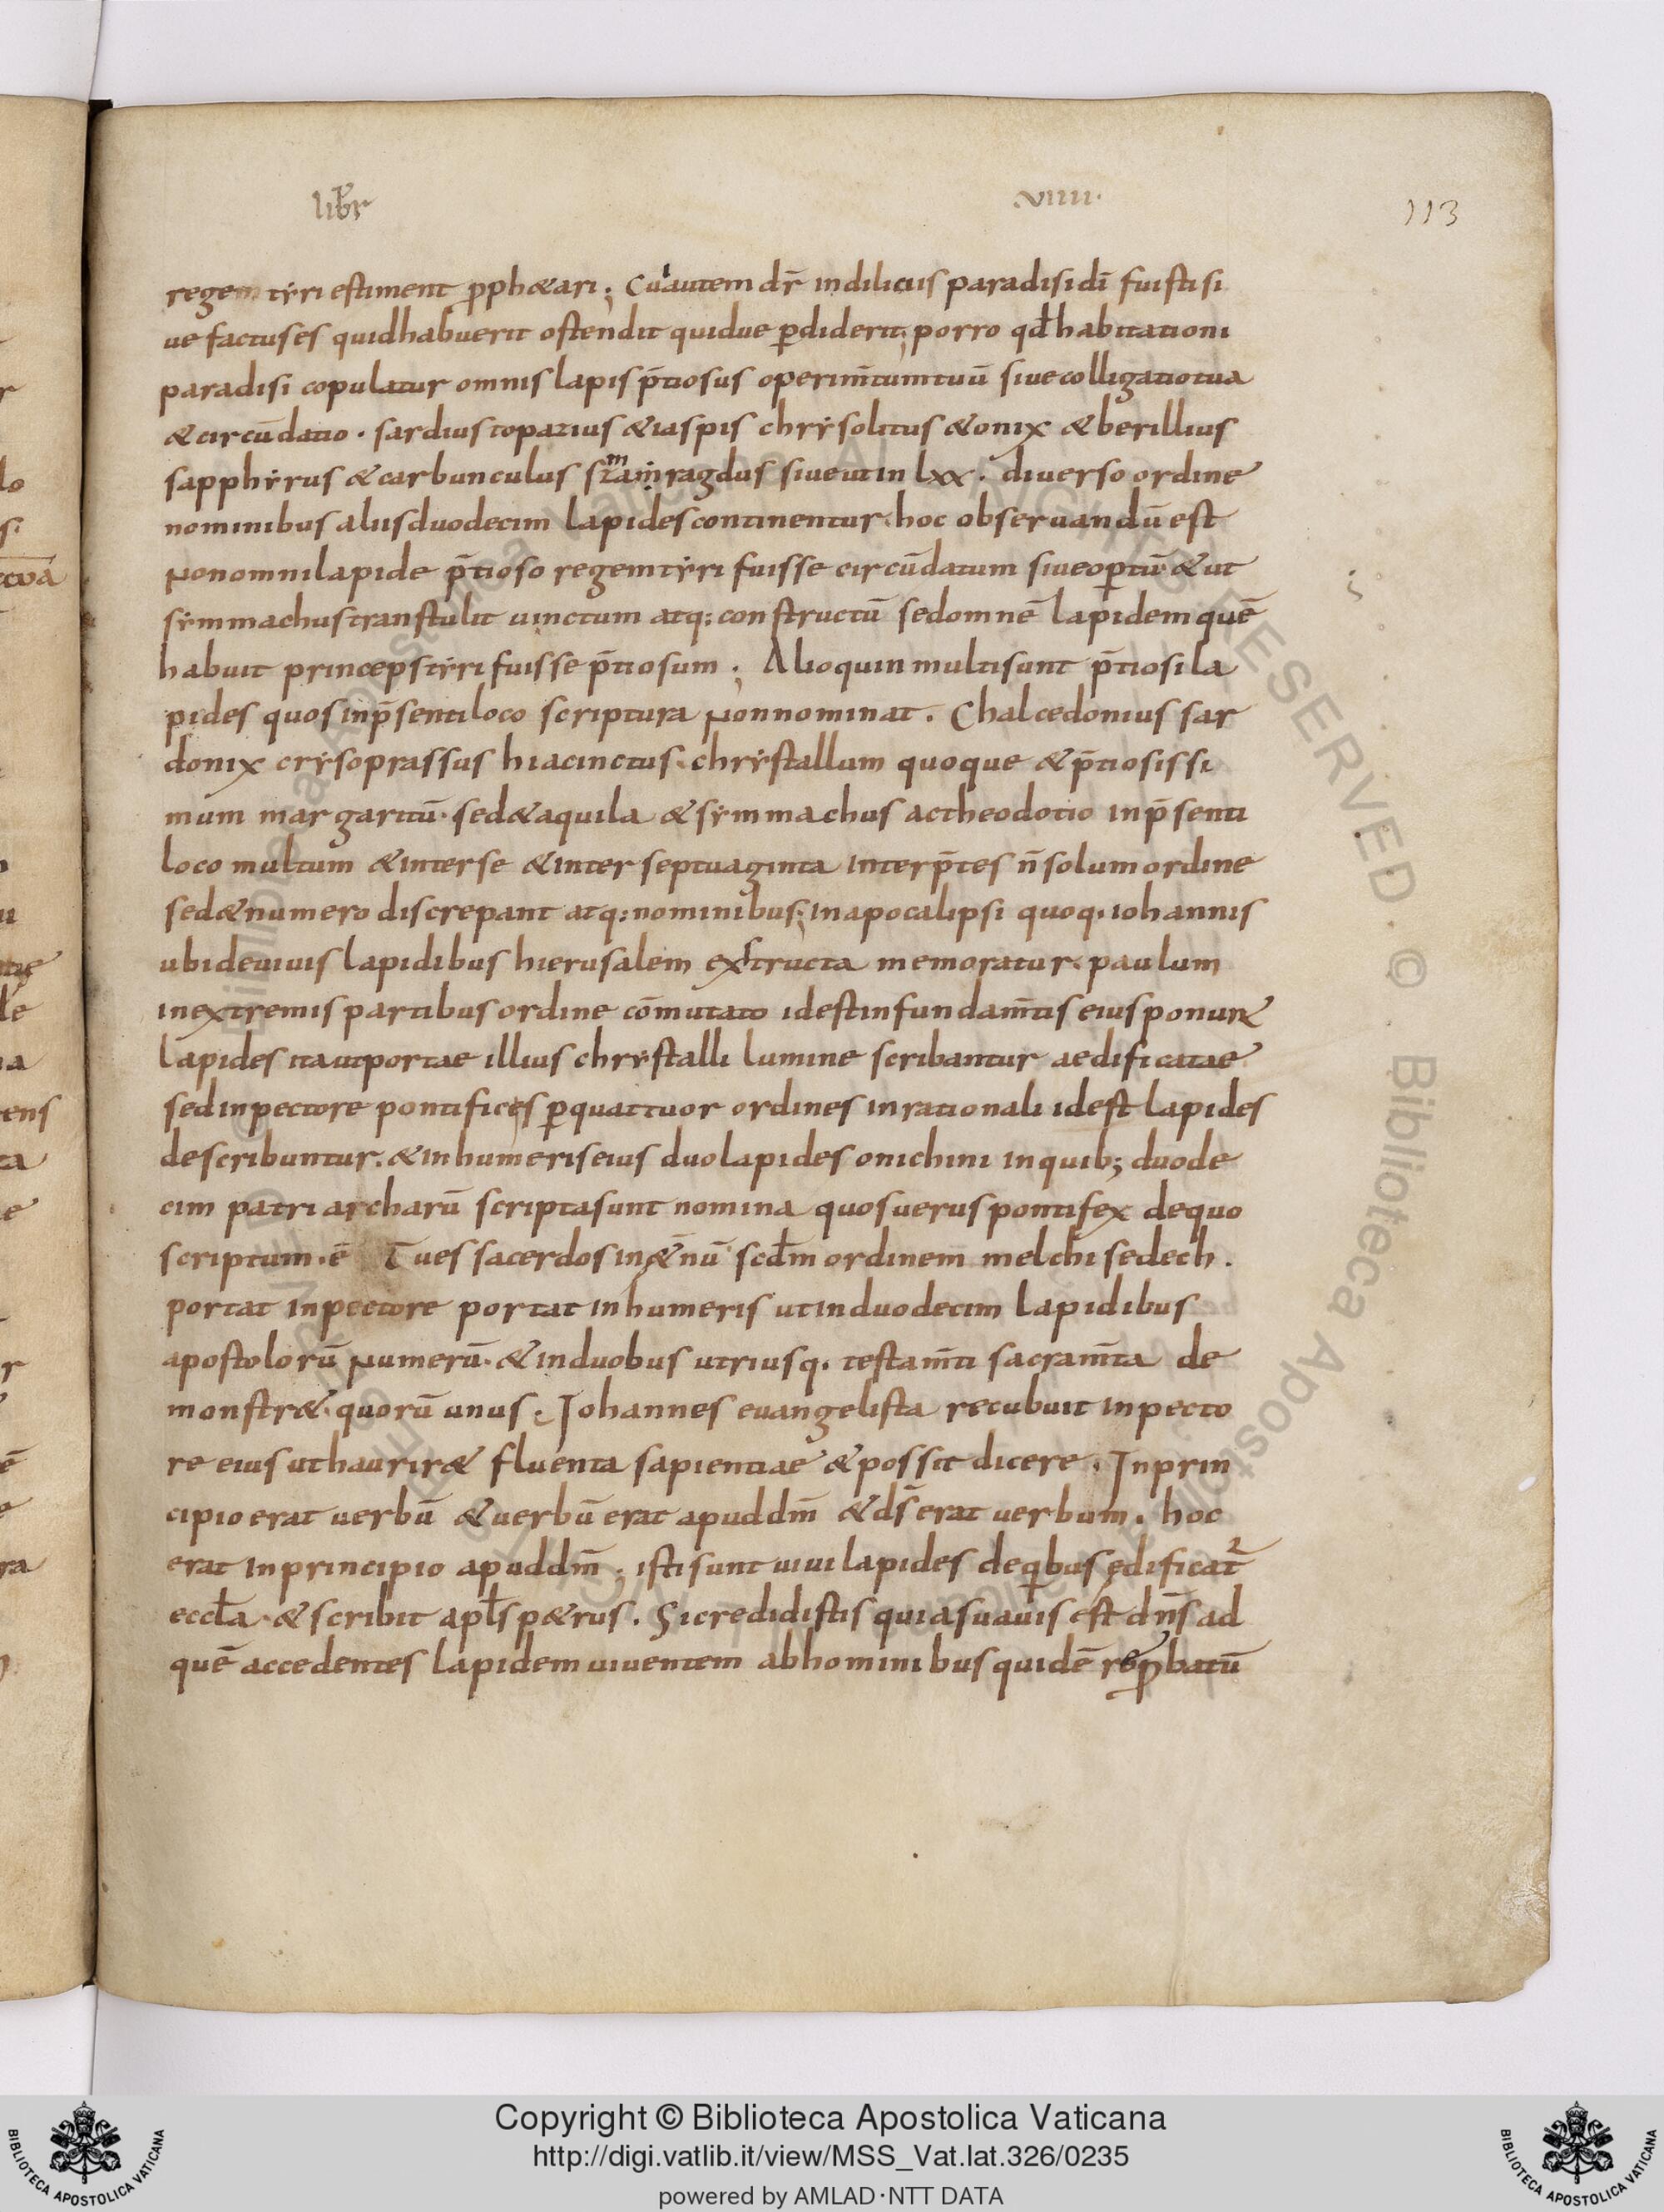 libr VIIII·
113
regem tyri estiment ꝓphetari; Cū autem dr̄ indiliciis paradisi dī fuisti si
ue factus es quid habuerit ostendit quidue ꝑdiderit; porro qđ habitationi
paradisi copulatur omnis lapis p̄tiosus operim̄tum tuū siue colligatio tua
& circūdatio · sardius topazius & iaspis chrẏsolitus & onix & berillius
sapphẏrus & carbunculus szmaragdus siue ut in lxx · diuerso ordine
nominibus aliis duodecim lapides continentur · hoc obseruandū est
Non omni lapide p̄tioso regem tẏri fuisse circūdatum siue oꝑtū · & ut
sẏmmachus transtulit uinctum atq; constructū sed omnē lapidem quē
habuit princeps tẏri fuisse p̄tiosum ; Alioquin multi sunt p̄tiosi la
pides quos in p̄senti loco scriptura Non nominat . Chalcedonius sar
donix crẏsoprassus hiacinctus · chrẏstallum quoque & p̄tiosissi
mum margaritū · sed & aquila & sẏmmachus ac theodotio in p̄senti
loco multum & inter se & inter septuaginta interp̄tes n̄ solum ordine
sed & numero discrepant atq; nominibus ; in apocalipsi quoq · iohannis
ubi de uiuis lapidibus hierusalem exstructa memoratur · paulum
in extremis partibus ordine cōmutato id est in fundam̄tis eius ponunt᷑
lapides ita ut portae illius chrẏstalli lumine scribantur aedificatae
sed in pectore pontifices ꝑ quattuor ordines in rationali id est lapides
describuntur · & in humeris eius duo lapides onichini in quib; duode
cim patriarcharū scripta sunt nomina quos uerus pontifex de quo
scriptum · ē Tu es sacerdos in &̄nū scđm ordinem melchisedech .
portat in pectore portat in humeris ut in duodecim lapidibus
apostolorū Numerū · & in duobus utriusq · testam̄ti sacram̄ta de
monstr& · quorū unus · Iohannes euangelista recubuit in pecto
re eius ut haurir& fluenta sapientiae & possit dicere . In prin
cipio erat uerbū & uerbū erat apud dm̄ & ds̄ erat uerbum . hoc
erat in principio apud dm̄ ; isti sunt uiui lapides de qͥbus ędificat᷑
eccła · & scribit apłs p&rus . Si credidistis quia suauis est dn̄s ad
quē accedentes lapidem uiuentem ab hominibus quidē reꝓbatū
Copyright © Biblioteca Apostolica Vaticana
http://digi.vatlib.it/view/MSS_Vat.lat.326/0235
powered by AMLAD·NTT DATA
BIBLIOTECA APOSTOLICA VATICANA
BIBLIOTECA APOSTOLICA VATICANA